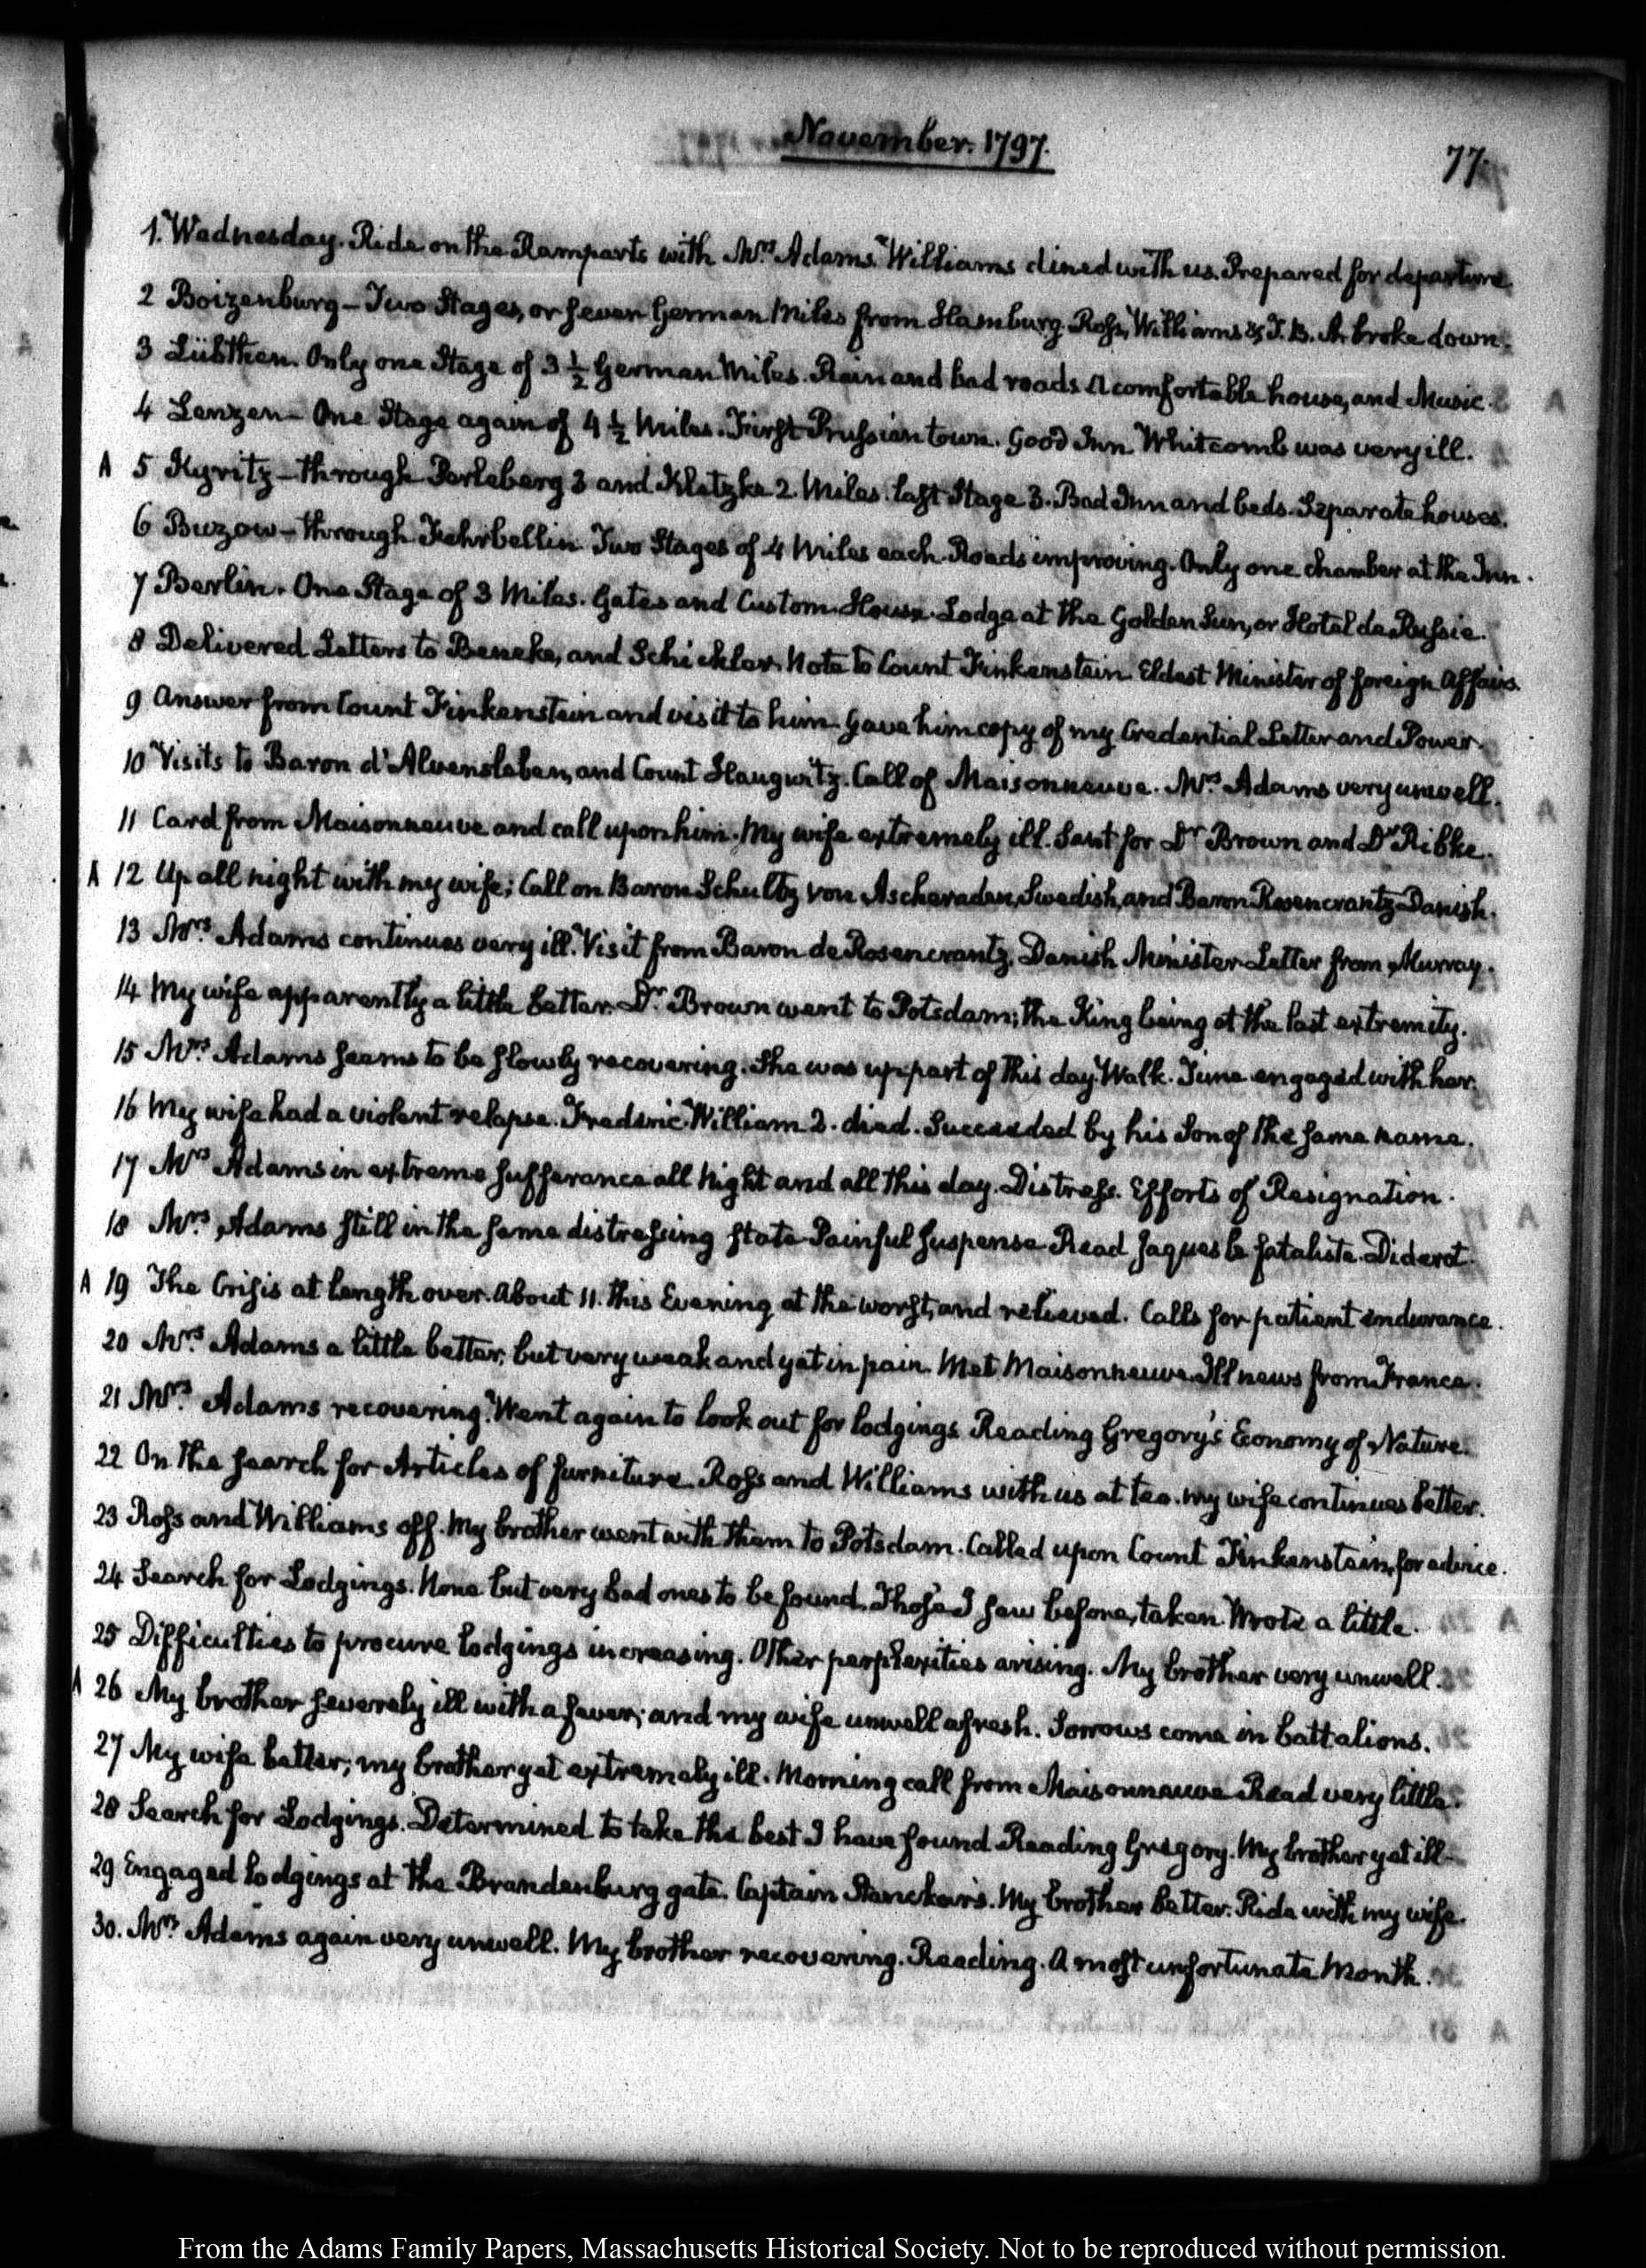 November. 1797.
77.
1. Wednesday. Ride on the Ramparts with Mrs. Adams. Williams dined with us. Prepared for departure.
2 Boizenburg – Two Stages, or seven German Miles from Hamburg. Ross, Williams & T. B. A. broke down.
3 Lübthen. Only one Stage of 3 1/2 German Miles. Rain and bad roads. A comfortable house, and Music.
4 Lenzen – One Stage again of 4 1/2 Miles. First Prussian town. Good Inn. Whitcomb was very ill.
A 5 Kyritz – through Perleberg 3 and Kletzke 2. Miles. last Stage 3. Bad Inn and beds. Separate houses.
6 Buzow – through Fehrbellin. Two Stages of 4 Miles each. Roads improving. Only one chamber at the Inn.
7 Berlin. One Stage of 3 Miles. Gates and Custom-House. Lodge at the Golden Sun, or Hotel de Russie.
8 Delivered Letters to Beneke, and Schickler. Note to Count Finkenstein. Eldest Minister of foreign Affairs.
9 Answer from Count Finkenstein and visit to him. Gave him copy of my Credential Letter and Power.
10 Visits to Baron d'Alvensleben, and Count Haugwitz. Call of Maisonneuve. Mrs. Adams very unwell.
11 Card from Maisonneuve and call upon him. My wife extremely ill. Sent for Dr Brown and Dr Ribke.
A 12 Up all night with my wife; Call on Baron Schultz von Ascheraden, Swedish, and Baron Rosencrantz Danish.
13 Mrs. Adams continues very ill. Visit from Baron de Rosencrantz, Danish Minister. Letter from Murray.
14 My wife apparently a little better. Dr. Brown went to Potsdam; the King being at the last extremity.
15 Mrs. Adams seems to be slowly recovering. She was up part of this day. Walk. Time engaged with her.
16 My wife had a violent relapse. Frederic William 2. died. Succeeded by his Son of the same name.
17 Mrs Adams in extreme sufferance all Night and all this day. Distress. Efforts of Resignation.
18 Mrs. Adams still in the same distressing state. Painful suspense. Read Jaques le fataliste. Diderot.
A 19 The Crisis at length over. About 11. this Evening at the worst, and relieved. Calls for patient endurance.
20 Mrs. Adams a little better, but very weak and yet in pain. Met Maisonneuve. Ill news from France.
21 Mrs. Adams recovering. Went again to look out for lodgings. Reading Gregory's Economy of Nature.
22 On the search for Articles of furniture. Ross and Williams with us at tea. My wife continues better.
23 Ross and Williams off. My brother went with them to Potsdam. Called upon Count Finkenstein, for advice.
24 Search for Lodgings. None but very bad ones to be found. Those I saw before, taken. Wrote a little.
25 Difficulties to procure lodgings increasing. Other perplexities arising. My brother very unwell.
A 26 My brother severely ill with a fever; and my wife unwell afresh. Sorrows come in battalions.
27 My wife better; my brother yet extremely ill. Morning call from Maisonneuve. Read very little.
28 Search for Lodgings. Determined to take the best I have found. Reading Gregory. My brother yet ill.
29 Engaged lodgings at the Brandenburg gate. Captain My brother better. Ride with my wife.
30. Mrs Adams again very unwell. My brother recovering. Reading. A most unfortunate Month.
From the Adams Family Papers, Massachusetts Historical Society. Not to be reproduced without permission.